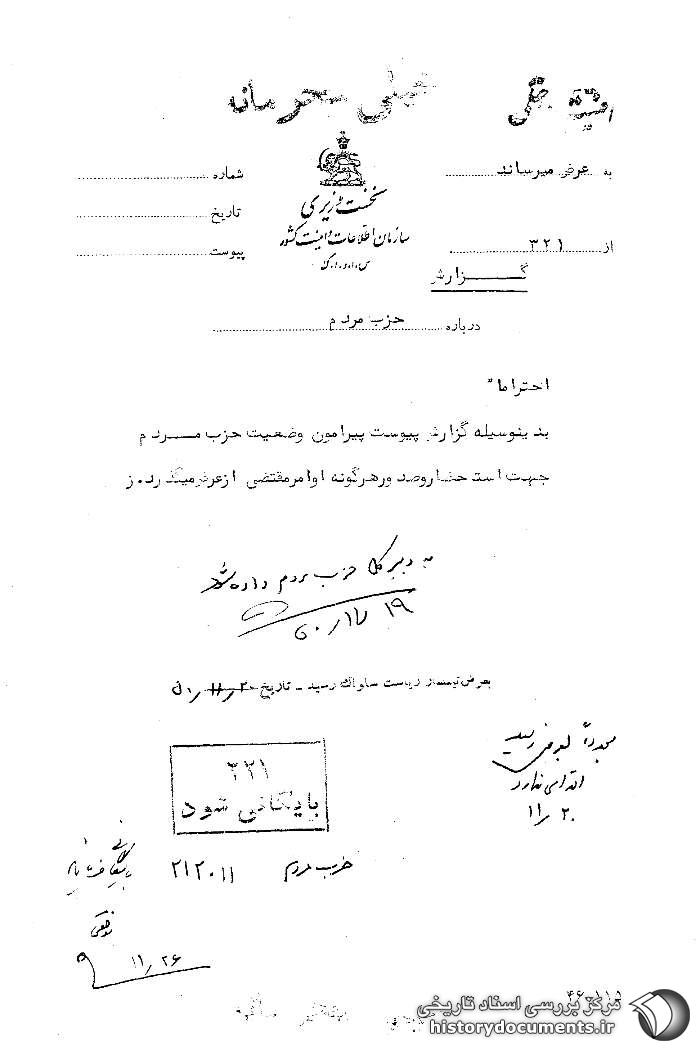 خیلی محرمانه
به عرض میرساند
شماره
نخست وزیری
تاریخ
سازمان اطلاعات و امنیت کشور
از ۳۲۱
پیوست
س.ا.و.ا.ک
گزارش
درباره حزب مردم
احتراما"
بدینوسیله گزارش پیوست پیرامون وضعیت حزب مردم
جهت استحضار و صدور هرگونه اوامر مقتضی از عرض میگذرد. ز
به دبیر کل حزب مردم داده شد
۵۰/۱۱/۱۹
بعرض تیمسار ریاست ساواک رسید - تاریخ ۵۰/۱۱/۲۰
مجدداً بعرض رسید
اقدامی ندارد
۱۱/۲۰
۳۲۱
بایگانی شود
حزب مردم ۲۱۲۰۱۱
بایگانی فرمائید
۱۱/۲۶
مرکز بررسی اسناد تاریخی
historydocuments.ir